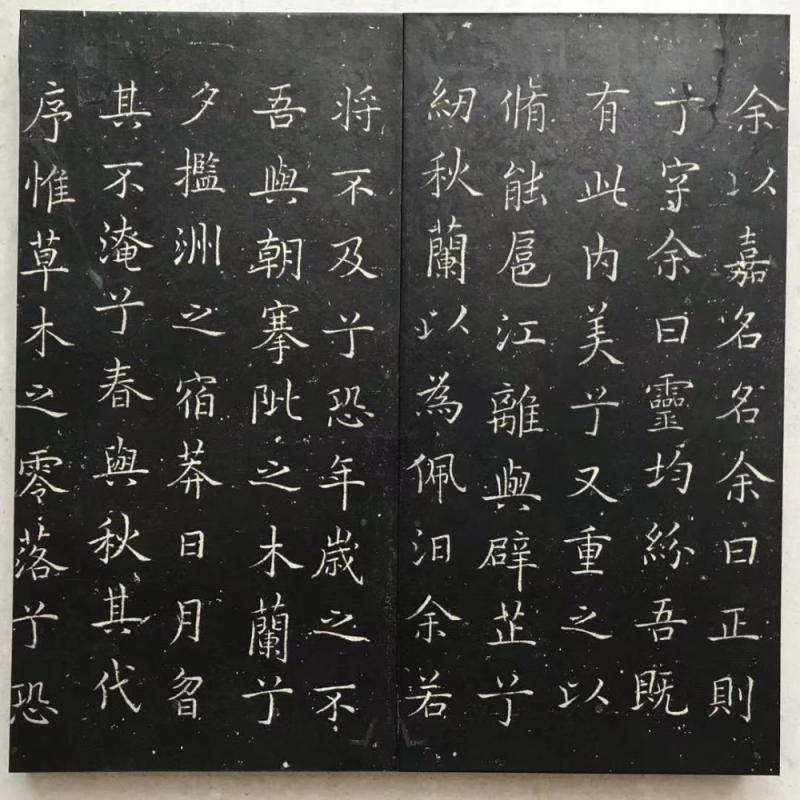 余以嘉名名余曰正則
兮字余曰靈均紛吾既
有此内美兮又重之以
脩能扈江離與辟芷兮
紉秋蘭以為佩汩余若
将不及兮恐年歲之不
吾與朝搴阰之木蘭兮
夕㩜洲之宿莽日月曶
其不淹兮春與秋其代
序惟草木之零落兮恐